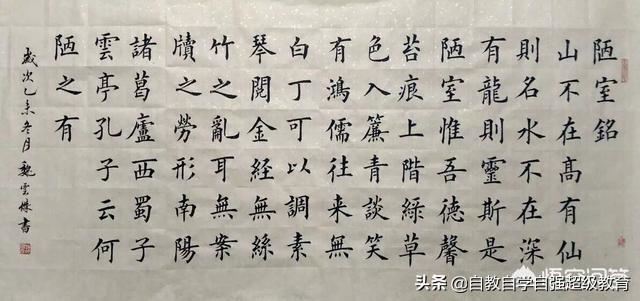 陋室銘
山不在高有仙
則名水不在深
有龍則靈斯是
陋室惟吾德馨
苔痕上階綠草
色入簾青談笑
有鴻儒往来無
白丁可以調素
琴閱金経無絲
竹之亂耳無案
牘之勞形南陽
諸葛廬西蜀子
雲亭孔子云何
陋之有
歲次乙未冬月 魏雲書
悟空问答
头条 @自教自学自强超级教育